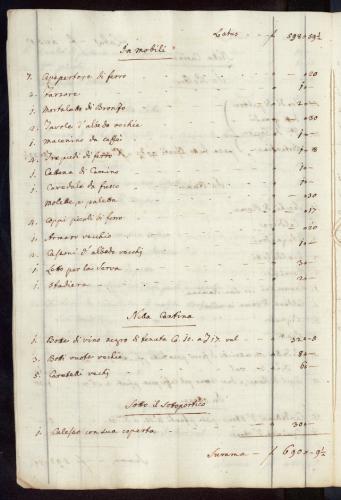 Latus — f 598 " 59½
In mobili
7. Copertore di ferro " 20
2. Farsore 1 " —
1. Mortaletto di Bronso 2 " —
2. Tavole d'albeo vechie " 30
1. macenino da caffè 1 " —
4. Trepiedi di ferro
1. Cattena di Camino 1 " —
1. Cavedale da fuoco
molette e paletta " 30
" 17
4. Coppi picoli di ferro " 20
1. Armaro vecchio
2. Cassoni d'albeo vecchj 10 —
1. Letto per la Serva 30 —
1. Stadiera 2 " —
Nella Cantina
1. Botte di vino negro di tenuta C. 10. a f 17. val
3. Boti vuote vechie 8 " —
5. Caratelli vechj 6 " —
Sotto il Sotoportico
1. Calesso con sua coperta 30 " —
Summa — f 690 " 9½